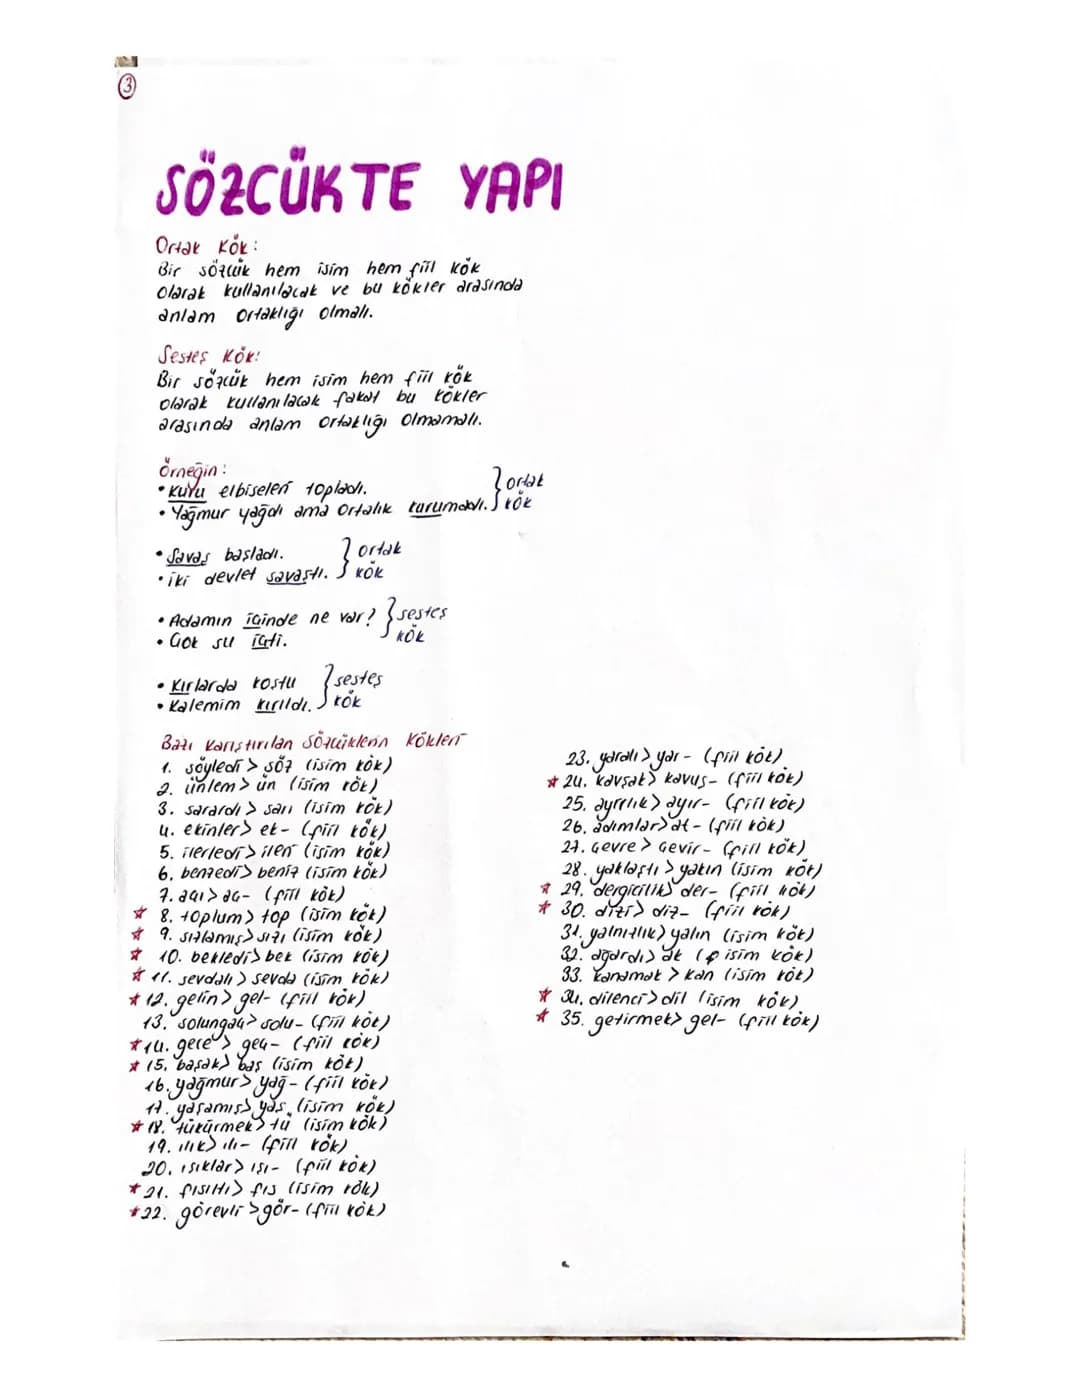 3
SÖZCÜKTE YAPI
Ortak Kök:
Bir sözcük hem isim hem fiil kök
olarak kullanılacak ve bu kökler arasında
anlam ortaklığı olmalı.
Sesteş Kök:
Bir sözcük hem isim hem fiil kök
olarak kullanılacak fakat bu kökler
arasında anlam ortaklığı olmamalı.
Örneğin:
• Kuru elbiseleri topladı.
• Yağmur yağdı ama ortalık kurumadı. } ortak kök
• Savaş başladı.
• iki devlet savaştı. } ortak kök
• Adamın içinde ne var?
• Çok su içti. } sesteş kök
• Kırlarda koştu
• Kalemim kırıldı. } sesteş kök
Bazı Karıştırılan Sözcüklerin Kökleri
1. söyledi > söz (isim kök)
2. ünlem > ün (isim kök)
3. sarardı > sarı (isim kök)
4. ekinler > ek- (fiil kök)
5. ilerledi > ileri (isim kök)
6. benzedi > beniz (isim kök)
7. açı > aç- (fiil kök)
★ 8. toplum > top (isim kök)
★ 9. sızlamış > sızı (isim kök)
★ 10. bekledi > bek (isim kök)
★ 11. sevdalı > sevda (isim kök)
★ 12. gelin > gel- (fiil kök)
13. solungaç > solu- (fiil kök)
★ 14. gece > geç- (fiil kök)
★ 15. başak > baş (isim kök)
16. yağmur > yağ- (fiil kök)
17. yaşamış > yaş (isim kök)
★ 18. tükürmek > tü (isim kök)
19. ılık > ılı- (fiil kök)
20. ışıklar > ışı- (fiil kök)
★ 21. fısıltı > fıs (isim kök)
★ 22. görevli > gör- (fiil kök)
23. yaralı > yar- (fiil kök)
★ 24. kavşak > kavuş- (fiil kök)
25. ayrılık > ayır- (fiil kök)
26. adımlar > at- (fiil kök)
27. çevre > çevir- (fiil kök)
28. yaklaştı > yakın (isim kök)
★ 29. dergicilik > der- (fiil kök)
★ 30. dizi > diz- (fiil kök)
31. yalnızlık > yalın (isim kök)
32. ağardı > ak (isim kök)
33. kanamak > kan (isim kök)
★ 34. dilenci > dil (isim kök)
★ 35. getirmek > gel- (fiil kök)